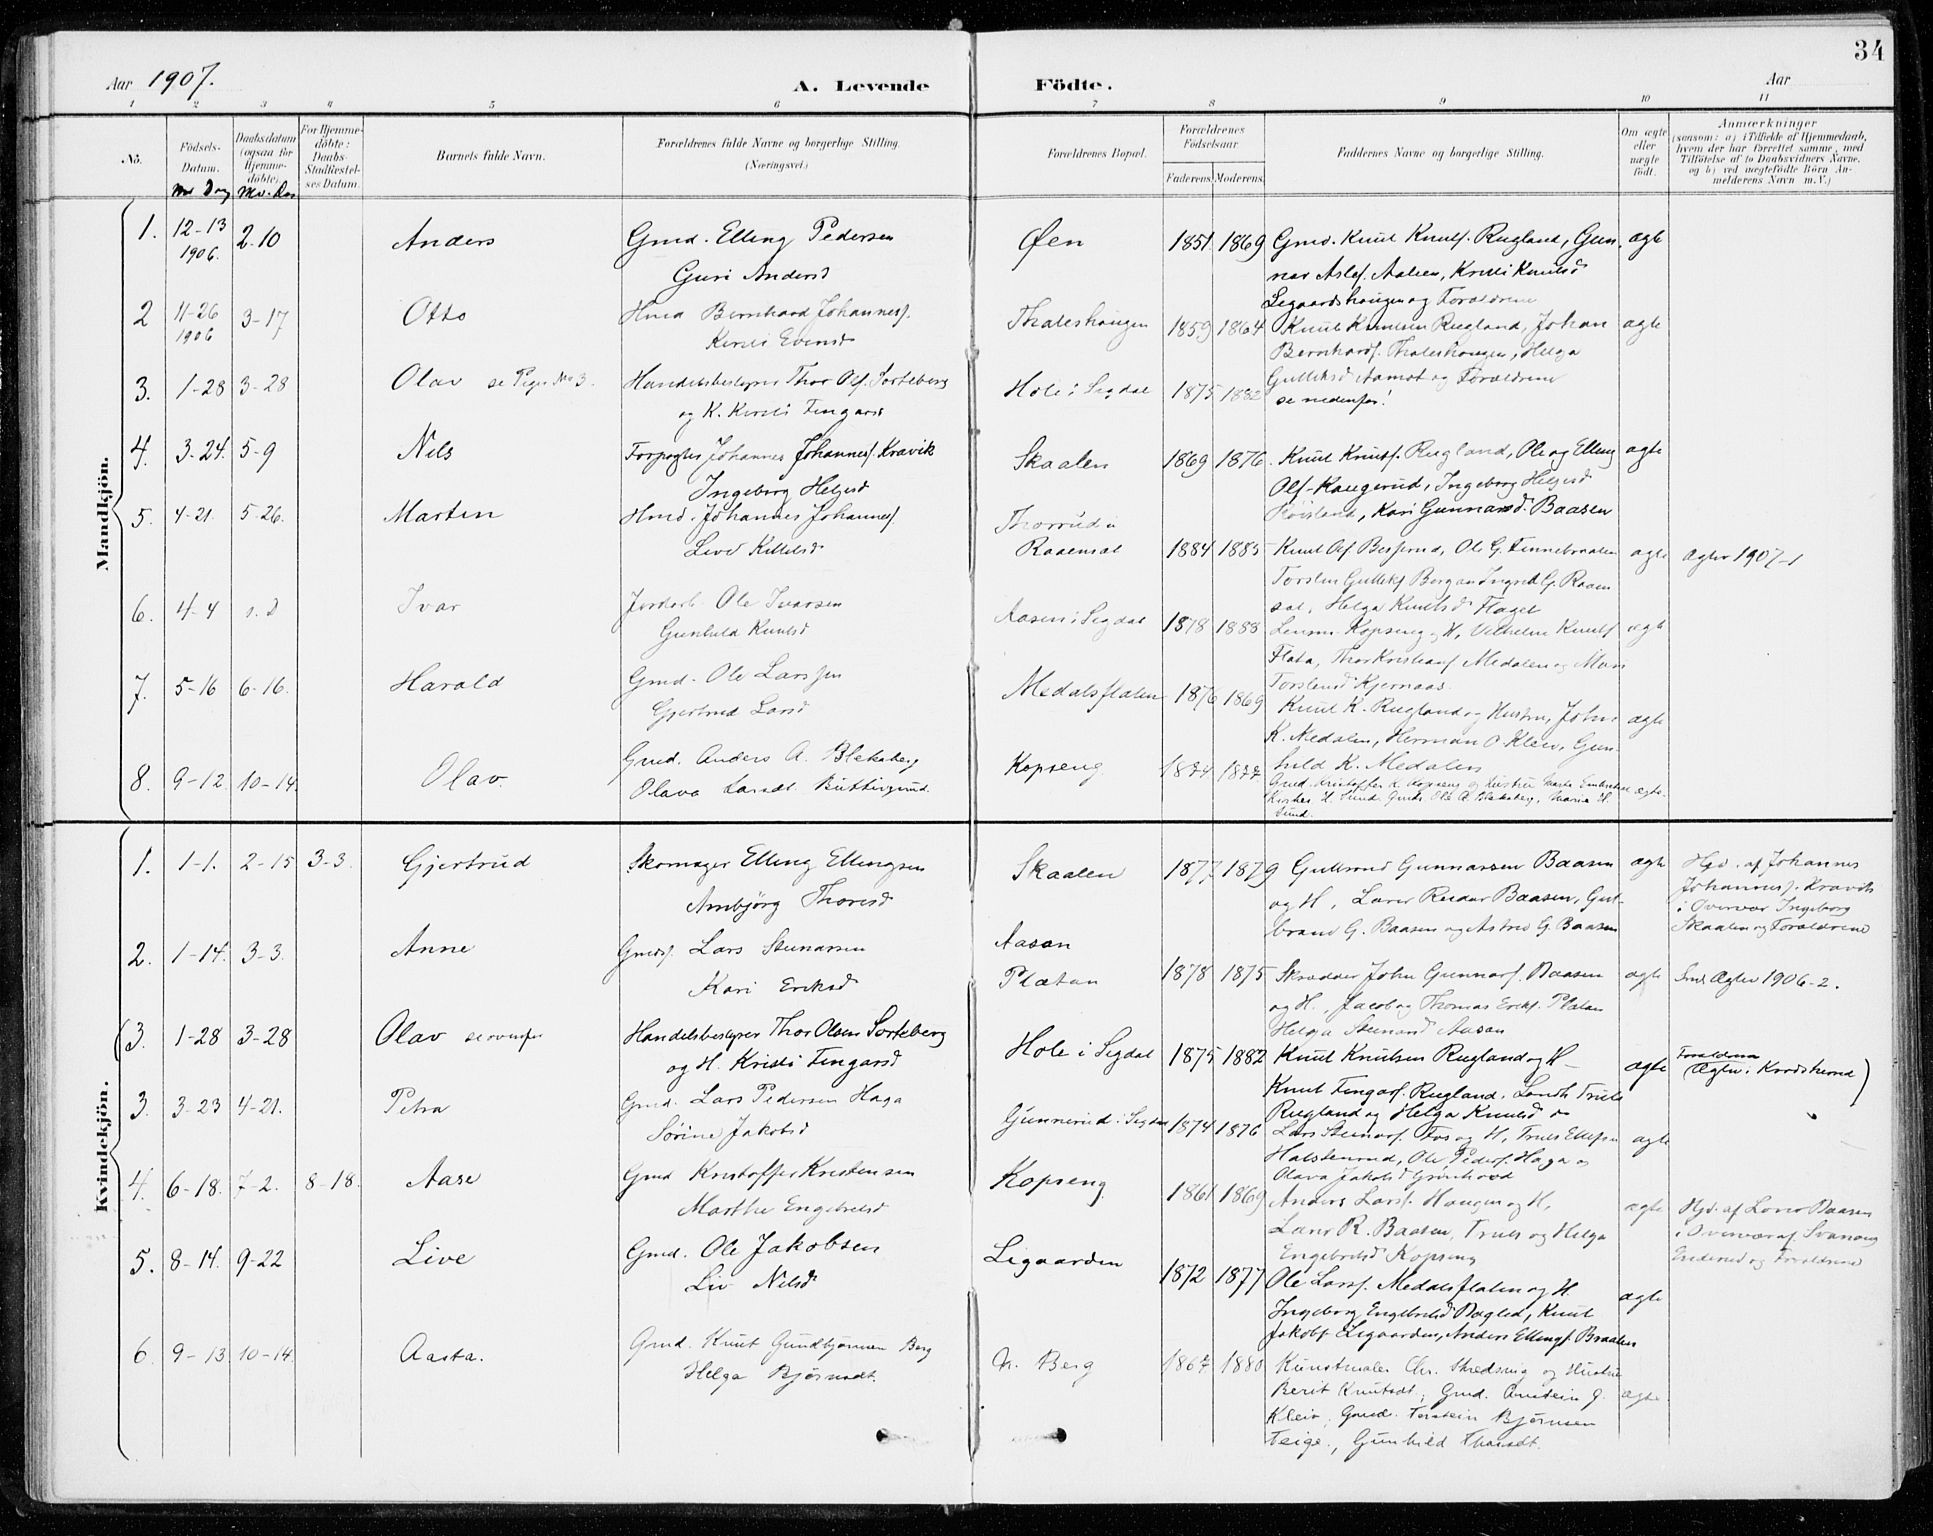 34
Aar 1907.
A. Levende Födte.
Aar
1 2 3 4 5 6 7 8 9 10 11
No.
Födsels-Datum.
Md Dag
Daabsdatum (ogsaa for Hjemme-döbte).
Md. Dag
For Hjemme-döbte: Daabs-Stadfæstel-ses Datum.
Barnets fulde Navn.
Forældrenes fulde Navne og borgerlige Stilling.
(Næringsvei.)
Forældrenes Bopæl.
Forældrenes Födselsaar.
Faderens. Moderens.
Faddernes Navne og borgerlige Stilling.
Om ægte eller uægte födt.
Anmærkninger
(saasom: a) i Tilfælde af Hjemmedaab, hvem der har forrettet samme, med Tilföielse af to Daabsvidners Navne, og b) ved uægtefödte Börn Anmelderens Navn m. V.)
Mandkjön.
1. 12-13 1906. 2-10 Anders Gmd. Elling Pedersen Øen 1851 1869 Gmd. Knut Knuts. Rugland, Gun- ægte
Guri Andersd nar Aslef. Aalien, Kristi Knutsd
Ligaardshaugen og Forældrene
2 11-26 1906 3-17 Otto Hmd Bernhard Johannesf. Thaleshaugen 1859 1864 Knut Knutsen Rugland, Johan ægte
Kersti Evensd Bernhardf. Thaleshaugen, Helga
Gulliksd Aamot og Forældrene
3. 1-28 3-28 Olav se Piger No 3. Handelsbestyrer Thor Olf. Sorteberg Hole i Sigdal 1875 1882 se nedenfor!
og K. Kersti Fingarsd
4. 3-24. 5-9 Nils Forpagter Johannes Johannesf. Kravik Skaalen 1869 1876. Knut Knutsf. Rugland, Ole og Elling ægte
Ingeborg Helgesd Olf. Kaugerud, Ingeborg Helgesd
Kari Gunnarsd. Baasen
5. 4-21. 5-26. Martin Hmd. Johannes Johannesf. Thorrud i
Live Kittelsd Raaensal 1884 1885 Knut Olf Ole G. Finnebraaten ægte ægtev 1907-1
Torsten Gulliksf Bergan Ingrid G. Raaen
sal, Helga Knutsd Flaget
6. 4-4 s. d Ivar Jordarb. Ole Ivarsen Aasen i Sigdal 1878 1888 Lensm. Kopseng og H, Vilhelm Knutsf ægte
Gunhild Knutsd Flata, Thor Kristiansf Medalen og Mari
Torstensd Kjernaas.
7. 5-16 6-16. Harald Gmd. Ole Larssen Medalsflaten 1876 1869 Knut K. Rugland og Hustru, John ægte
Gjertrud Larsd K. Medalen, Herman O Kleiv, Gun-
hild K. Medalen
8. 9-12. 10-14. Olav. Gmd. Anders A. Blekeberg Kopseng Gmd. Kristoffer K. Kopseng og Hustru Marte ægte.
Olava Larsdt. H. Sund. Ole A. Blekeberg, Marie H.
Sund.
Kvindekjön.
1. 1-1. 2-15 3-3. Gjertrud Skomager Elling Ellingsen Skaalen 1877 1879 Gulbrand Gunnarsen Baasen ægte Hjd. af Johannes
Arnbjørg Thoresd og H, Lærer Reidar Baasen, Gul- Johannesf. Kravik
brand G. Baasen og Astrid G. Baasen i Overvær Ingeborg
Skaalen og Forældrene
2. 1-14. 3-3. Anne Gmdsf. Lars Steinarsen Aasan
Kari Eriksd Plætan 1878 1875 Skrædder John Gunnarf. Baasen ægte Smd. Ægtev 1906-2.
og H., Jacob og Thomas Erikf. Plætan
Helga Steinarsd Aasan
3. 1-28 3-28 Olav se ovenfor Handelsbestyrer Thor Olsen Sorteberg Hole i Sigdal 1875 1882 Knut Knutsen Rugland og H ægte Forældrene
og H. Kristi Fingarsd Knut Fingarf. Rugland, Landh. Truls (Ægtev i Krødsherred)
Rugland og Helga Knutsd
3. 3-23 4-21. Petra Gmd. Lars Pedersen Haga Gunnerud i Sigdal 1874 1876 Lars Steinarf. Fos og H, Truls Ellefsen ægte
Sørine Jakobsd Halstenrud, Ole Pedersf. Haga og
Olava Jakobsd Grønhovd
4. 6-18. 7-2. 8-18. Aase Gmd Kristoffer Kristensen Kopseng 1861 1869 Anders Larsf. Haugen og H, ægte Hjd. af Lærer Baasen
Marthe Engebretsd Lærer R. Baasen, Truls og Helga i Overvær af Svanaug
Engebretsd Kopseng og Forældrene
5. 8-14. 9-22 Live Gmd. Ole Jakobsen Ligaarden 1872 1877 Ole Larsf. Medalsflaten og H ægte
Liv Nilsd Ingeborg Engebretsd Daglid, Knut
Jakobsf. Ligaarden, Anders Ellingf. Braaten
6. 9-13. 10-14. Aasta. Gmd. Knut Gundbjørnsen Berg N. Berg 1867 1880 Kunstmaler Chr. Skredsvig og Hustru ægte.
Helga Bjørnsdt. Berit Knutsdt., Gmd. Anstein G.
Kleiv, Gmd. Torstein Bjørnsen
Teige., Gunhild Thorsdt.